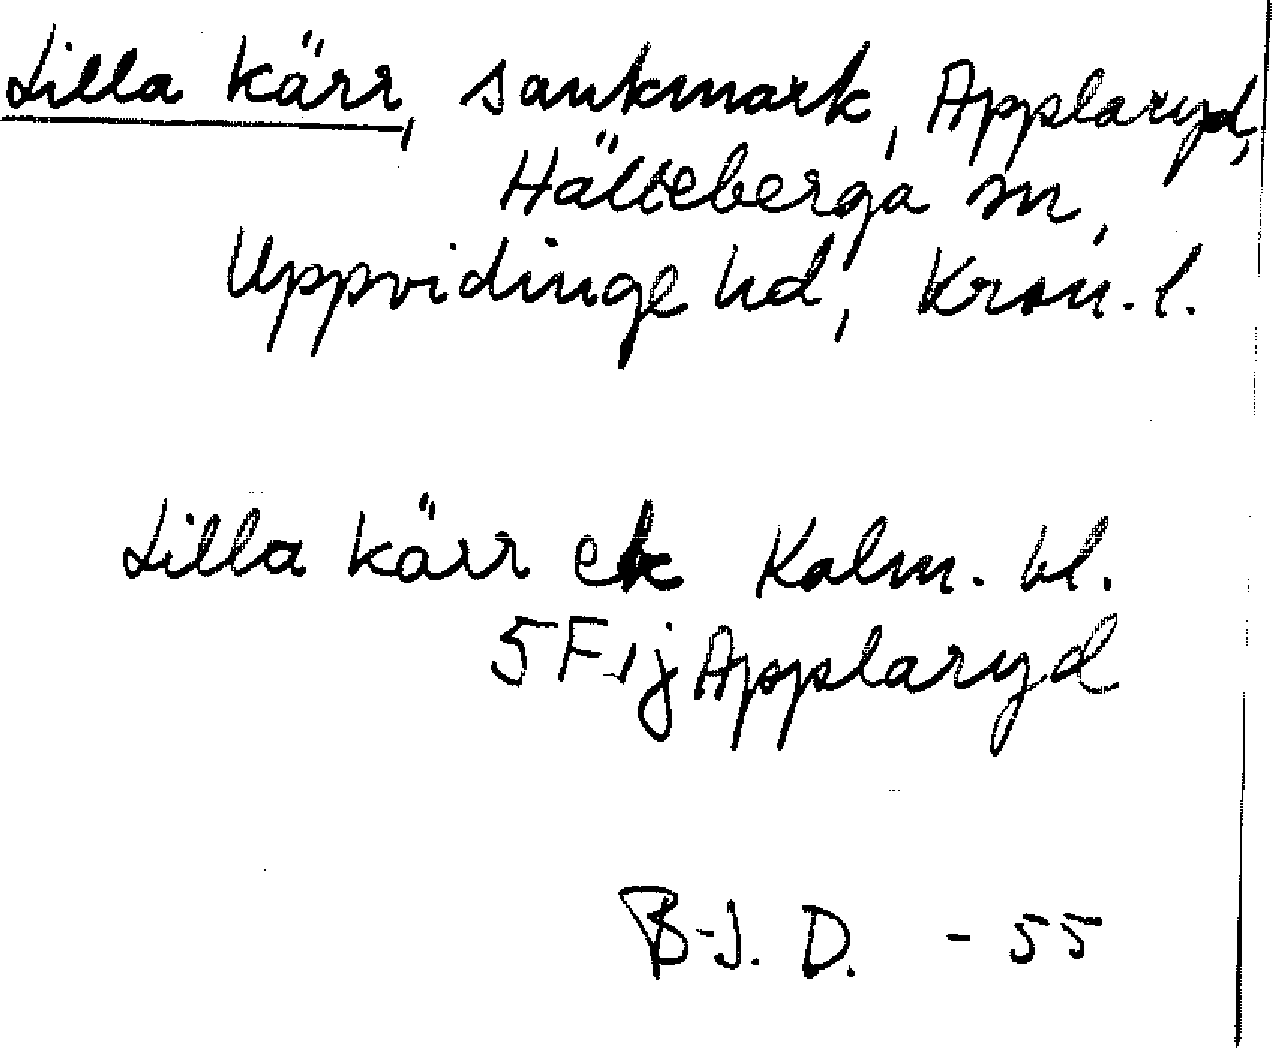 Lilla kärr, sankmark, Applaryd,
Hälleberga sn,
Uppvidinge hd, Kron. l.
Lilla kärr ek Kalm. bl.
5F ij Applaryd
B-J. D. - 55